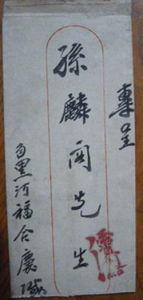 專呈
孫麟閣先生
自黑河福合慶緘